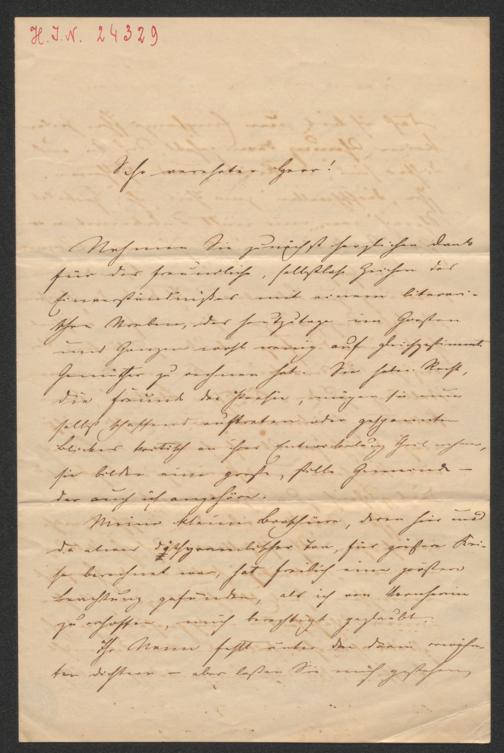 H.I.N. 24329
Sehr verehrter Herr!
Nehmen Sie zunächst herzlichen Dank
für das freundliche, selbstlose Zeichen des
Einverständnißes mit einem literari-
schen Streben, das heutzutage im Großen
und Ganzen wohl wenig auf gleichgestimmte
Gemüther zu rechnen hat. Sie haben Recht,
die Freunde der Poesie, mögen sie nun
selbst schaffend auftreten oder gespannten
Blickes kritisch an ihrer Entwickelung Theil nehmen,
sie bilden eine große, stille Gemeinde –
der auch ich angehöre.
Meine kleine Broschüre, deren hier und
da etwas dithyrambischer Ton, für größere Krei-
se berechnet war, hat freilich eine größere
Beachtung gefunden, als ich von vornherein
zu erhoffen, mich berechtigt geglaubt.
Ihr Name fehlt unter den darin erwähn-
ten Dichtern – aber laßen Sie mich gestehen,